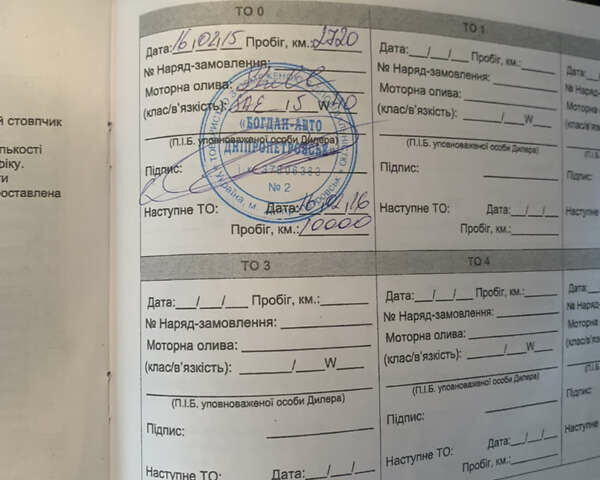 й стовпчик
лькості
фіку.
ти
оставлена
ТО 0
Дата: 16,02,15 Пробіг, км.: 2720
№ Наряд-замовлення:
Моторна олива:
(клас/в'язкість): SAE 15 W 40
«БОГДАН-АВТО
ДНІПРОПЕТРОВСЬК»
(П.І.Б. уповноваженої особи Дилера)
Підпис:
№ 2
Наступне ТО: Дата: 16,02,16
Пробіг, км.: 10000
ТО 1
Дата: __/__/__ Пробіг, км.:
№ Наряд-замовлення:
Моторна олива:
(клас/в'язкість): ___/___W___
(П.І.Б. уповноваженої особи Дилера)
Підпис:
Наступне ТО: Дата: __/__/__
Пробіг, км.:
Дата:
№ Наряд
Моторна
(клас/в'яз
(П.І.Б
Підпис:
Наступне
ТО 3
Дата: __/__/__ Пробіг, км.:
№ Наряд-замовлення:
Моторна олива:
(клас/в'язкість): ___/___W___
(П.І.Б. уповноваженої особи Дилера)
Підпис:
Наступне ТО: Дата: __/__/__
ТО 4
Дата: __/__/__ Пробіг, км.:
№ Наряд-замовлення:
Моторна олива:
(клас/в'язкість): ___/___W___
(П.І.Б. уповноваженої особи Дилера)
Підпис:
Наступне ТО: Дата: __/__/__
Пробіг, км.:
Дата:
№ Наряд
Моторна
(клас/в'яз
(П.І.
Підпис:
Наступне